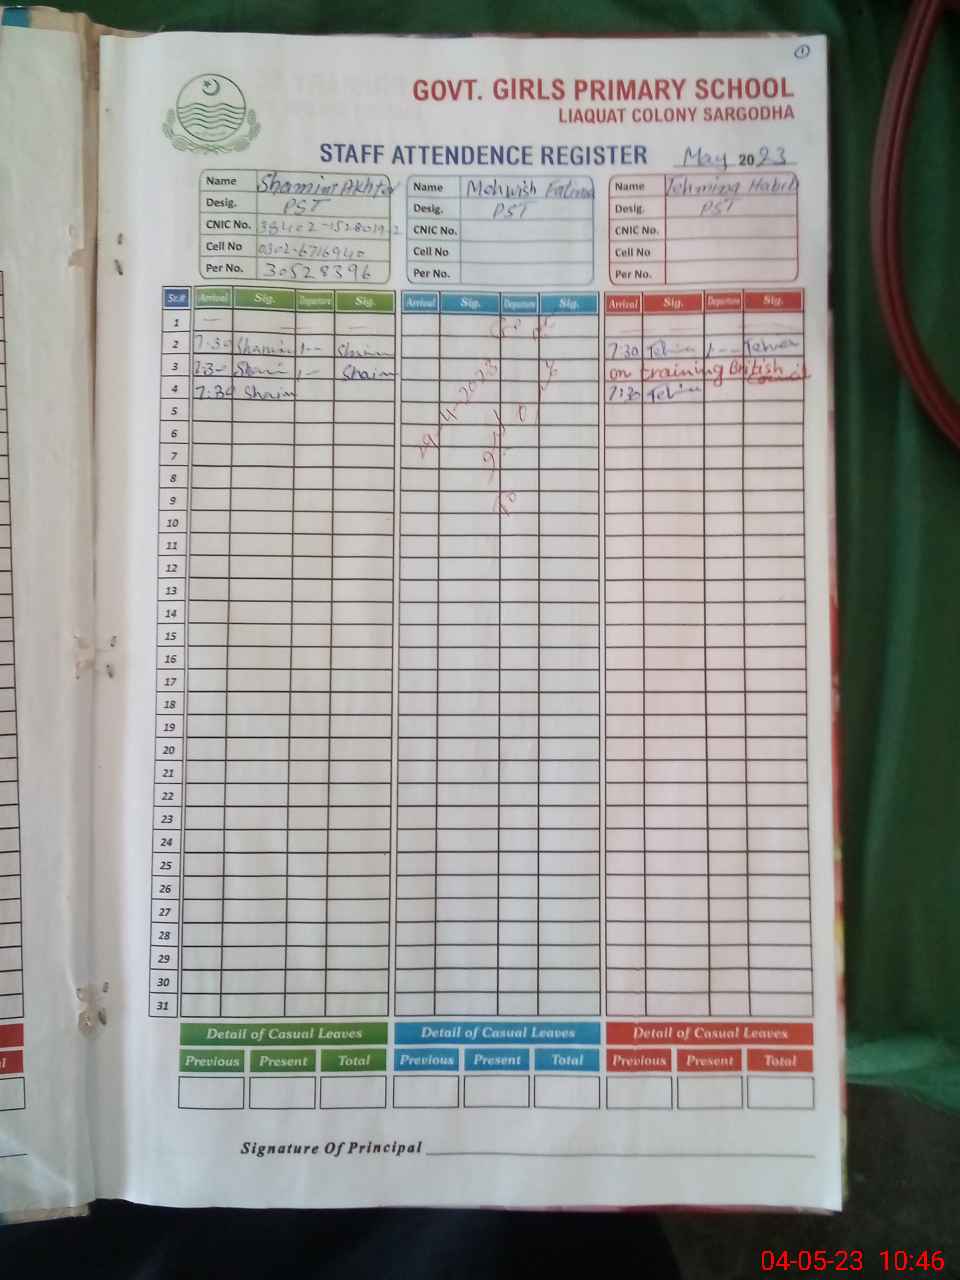 1
GOVT. GIRLS PRIMARY SCHOOL
LIAQUAT COLONY SARGODHA
STAFF ATTENDENCE REGISTER May 2023
Name Shamim Akhtar Name Mehwish Fatima Name Tehmina Habib
Desig. PST Desig. PST Desig. PST
CNIC No. CNIC No. CNIC No.
Cell No 0302-6716940 Cell No Cell No
Per No. 30528396 Per No. Per No.
Sr.# Arrival Sig. Departure Sig. Arrival Sig. Departure Sig. Arrival Sig. Departure Sig.
1
2 7:30 Shamim 1-- 7:30 1--
3 7:30 1-- on training British Council
4 7:30 7:30
29-4-2023
5
6
7
8
9
10
11
12
13
14
15
16
17
18
19
20
21
22
23
24
25
26
27
28
29
30
31
Detail of Casual Leaves Detail of Casual Leaves Detail of Casual Leaves
Previous Present Total Previous Present Total Previous Present Total
Signature Of Principal
04-05-23 10:46